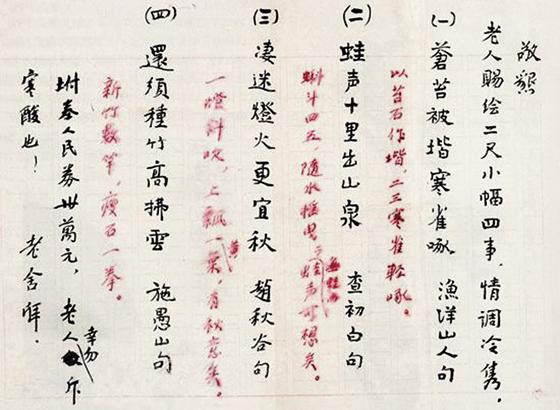 敬懇
老人賜绘二尺小幅四事，情调冷隽，
(一) 蒼苔被堦寒雀啄 漁洋山人句
以苔石作堦，二三寒雀輕啄。
(二) 蛙声十里出山泉 查初白句
蝌斗四五，随水摇曳；蛙声可想矣。
(三) 凄迷燈火更宜秋 趙秋谷句
一燈斜吹，上飄一黄葉，有秋意矣。
(四) 還須種竹高拂雲 施愚山句
新竹數竿，瘦石一拳。
坿奉人民券卅萬元，老人幸勿斥
寒酸也！ 老舍拜.